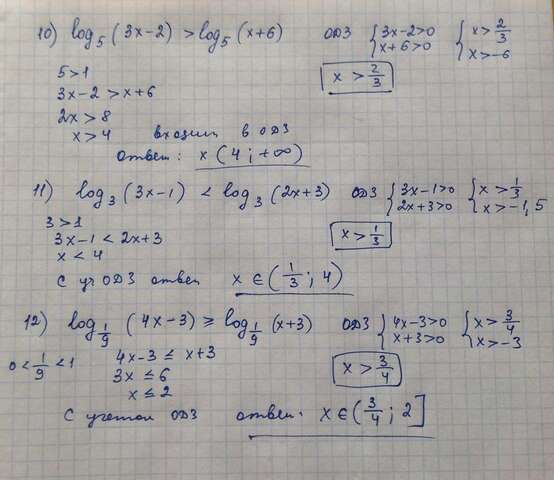 10) log₅(3x-2) > log₅(x+6) ОДЗ {3x-2>0 {x>2/3
{x+6>0 {x>-6
5>1 x>2/3
3x-2>x+6
2x>8
x>4 входит в ОДЗ
ответ: x(4; +∞)
11) log₃(3x-1) < log₃(2x+3) ОДЗ {3x-1>0 {x>1/3
{2x+3>0 {x>-1,5
3>1 x>1/3
3x-1<2x+3
x<4
С уч ОДЗ ответ x∈(1/3; 4)
12) log_1/9 (4x-3) ≥ log_1/9 (x+3) ОДЗ {4x-3>0 {x>3/4
{x+3>0 {x>-3
0<1/9<1 4x-3≤x+3 x>3/4
3x≤6
x≤2
С учетом ОДЗ ответ: x∈(3/4; 2]